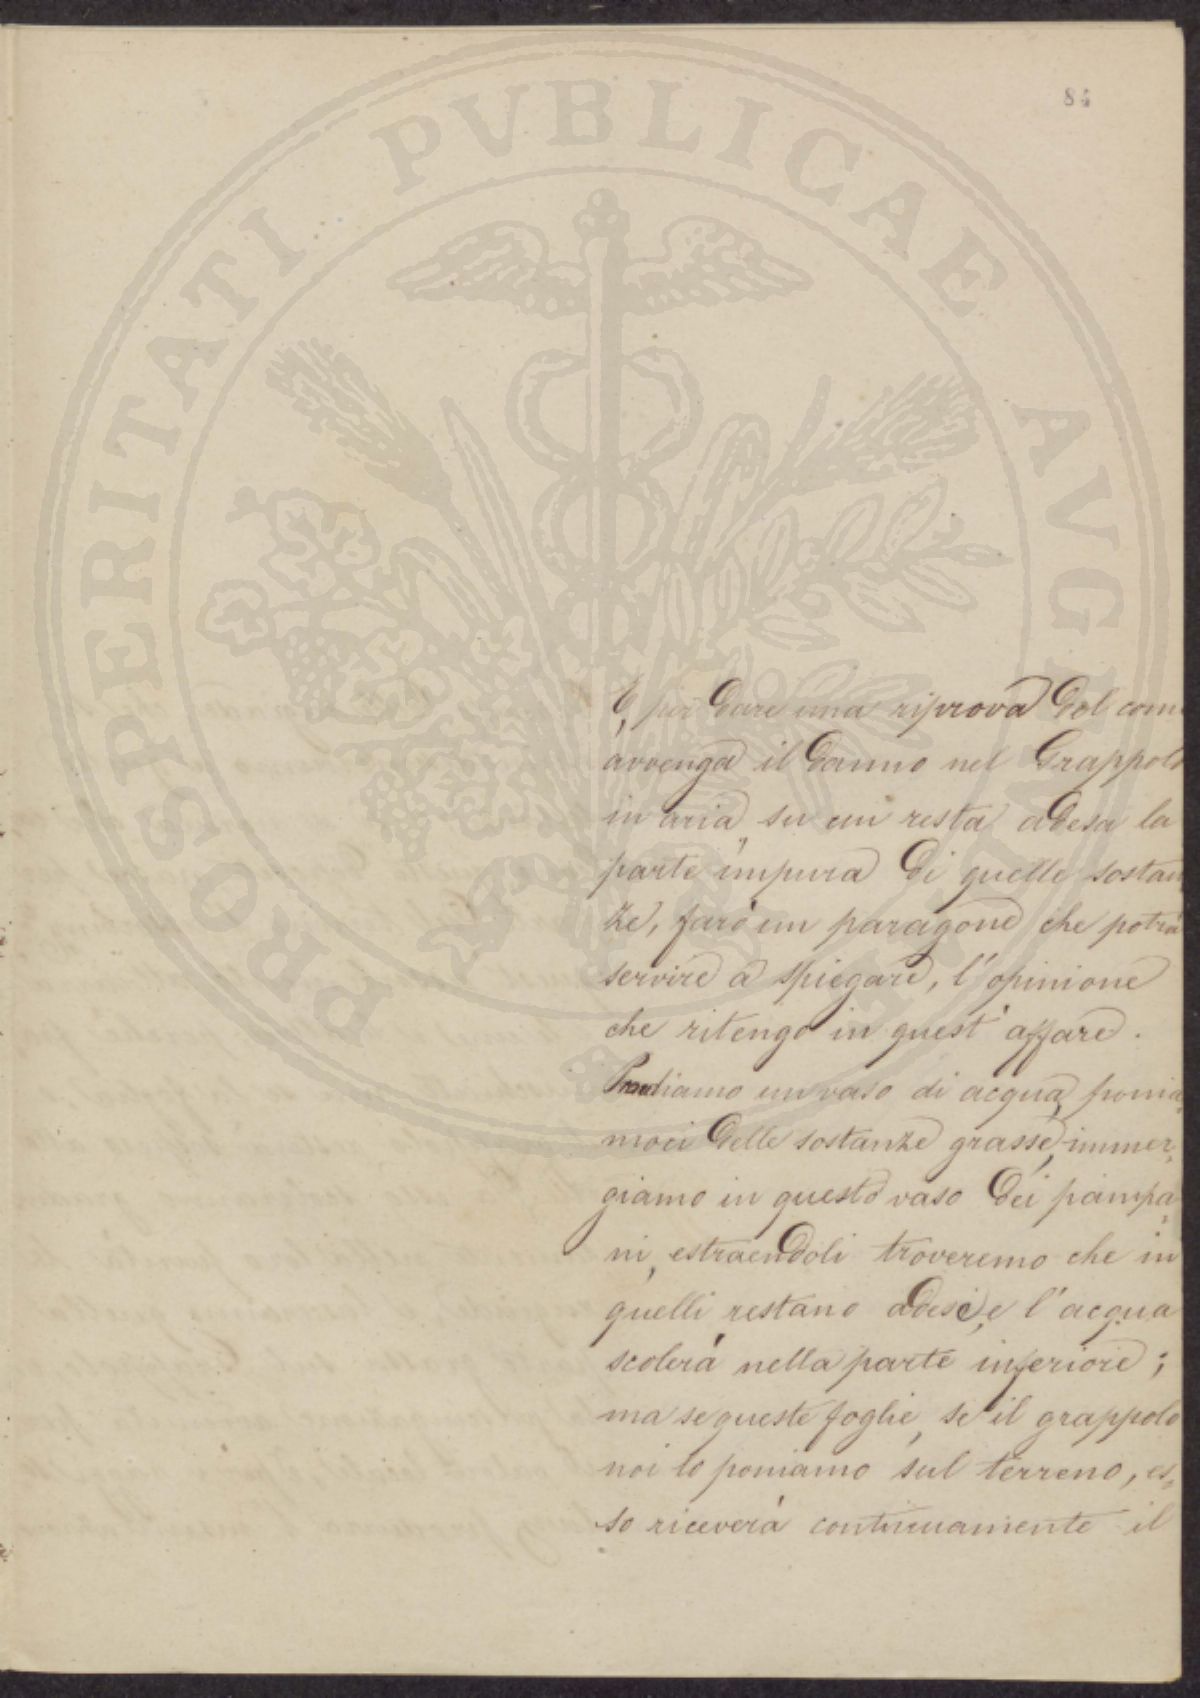 84
PROSPERITATI PUBLICAE AVGENDAE
E, per dare una riprova del come
avvenga il danno nel Grappolo
in aria su cui resta adesa la
parte impura di quelle sostan
ze, farò un paragone che potrà
servire a spiegare, l'opinione
che ritengo in quest'affare.
Prendiamo un vaso di acqua, ponia-
moci delle sostanze grasse, immer-
giamo in questo vaso dei pampa-
ni, estraendoli troveremo che in
quelli restano adesi, e l'acqua
scolerà nella parte inferiore;
ma se queste foglie, se il grappolo
noi lo poniamo sul terreno, es-
so riceverà continuamente il